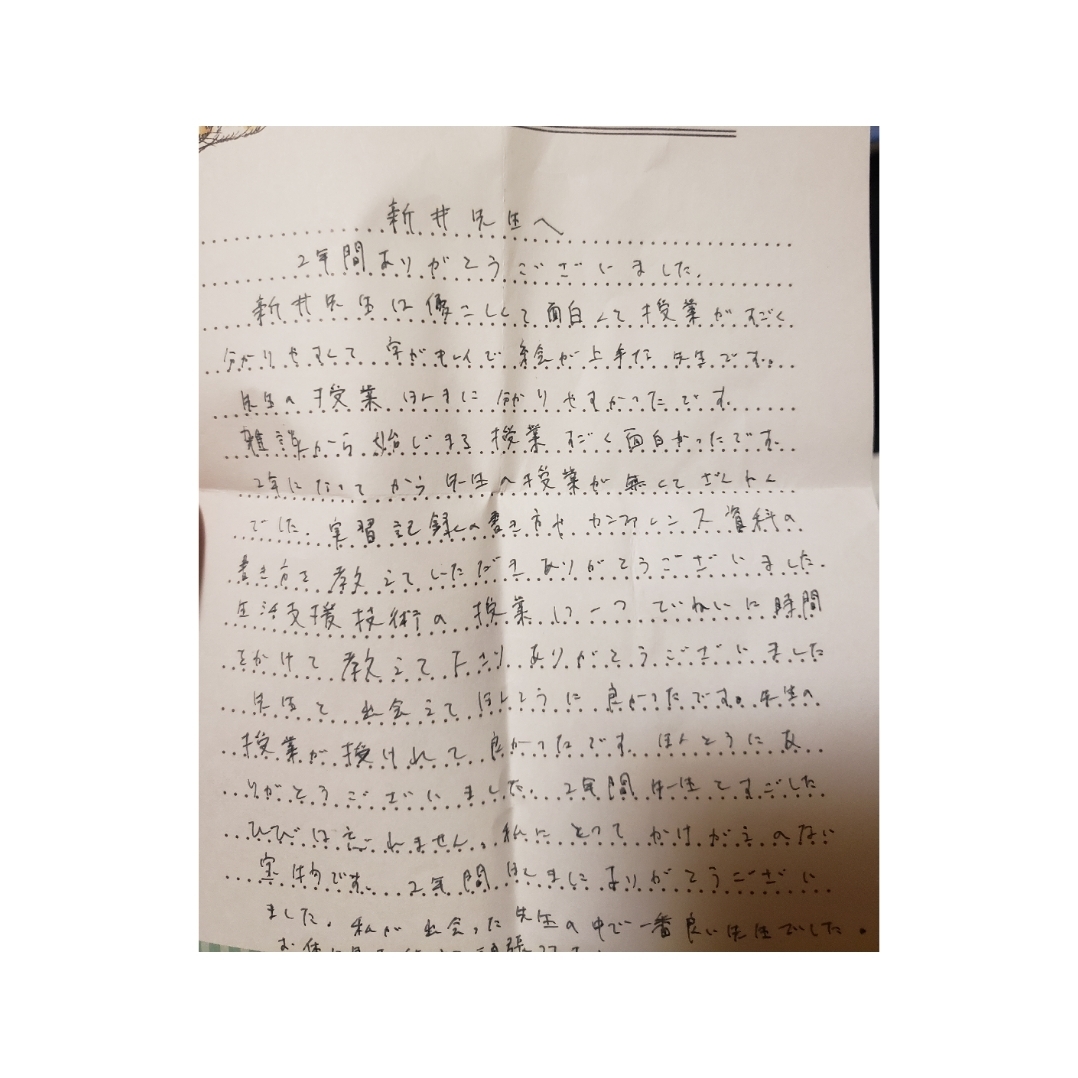 新井先生へ
2年間ありがとうございました。
新井先生は優こしくて面白くて授業がすごく
分かりやすくて字がキレイで絵が上手な先生です。
先生の授業ほんまに分かりやすかったです。
雑談から始じまる授業すごく面白かったです。
2年になってから先生の授業が無くてざんねん
でした。実習記録の書き方やカンファレンス資料の
書き方を教えていただきありがとうございました。
生活支援技術の授業に一つていねいに時間
をかけて教えて下さりありがとうございました
先生と出会えてほんとうに良かったです。先生の
授業が授けれて良かったです。ほんとうにあ
りがとうございました。2年間先生とすごした
ひびは忘れません。私にとってかけがえのない
宝物です。2年間ほんまにありがとうござい
ました。私が出会った先生の中で一番良い先生でした。
お体に